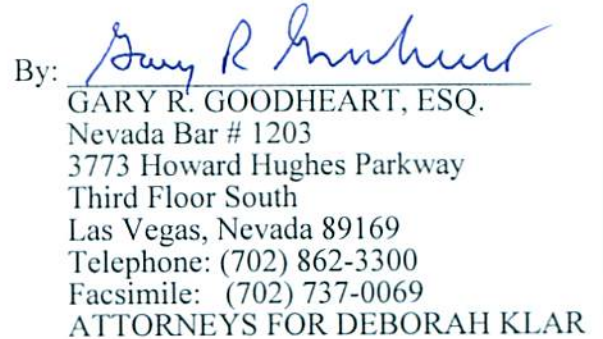 By: Gary R Goodheart
GARY R. GOODHEART, ESQ.
Nevada Bar # 1203
3773 Howard Hughes Parkway
Third Floor South
Las Vegas, Nevada 89169
Telephone: (702) 862-3300
Facsimile: (702) 737-0069
ATTORNEYS FOR DEBORAH KLAR